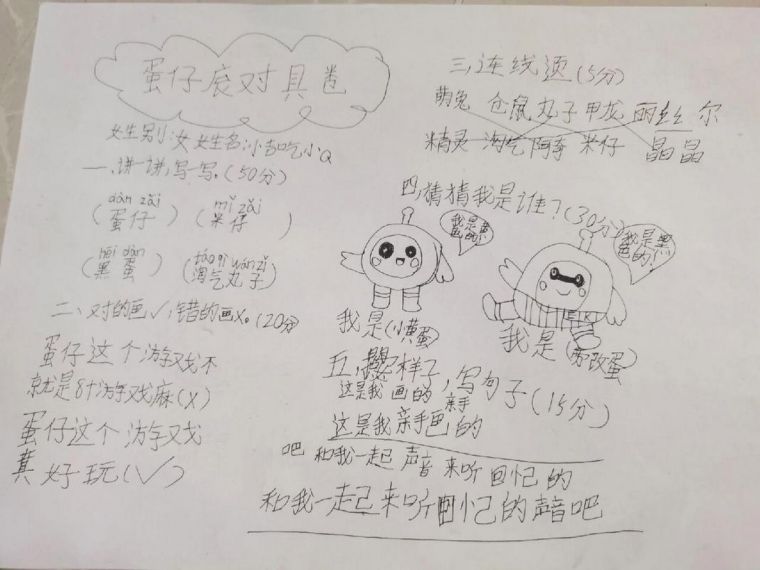 蛋仔辰对具卷
姓别:女 姓名:小吉吃小Q
一、讲一讲,写一写。(50分)
dàn zǎi mǐ zǎi
(蛋仔) (米仔)
hēi dàn táo qì wán zǐ
(黑蛋) (淘气丸子)
二、对的画√,错的画X。(20分)
蛋仔这个游戏不
就是8十游戏麻(X)
蛋仔这个游戏
真好玩(√)
三、连线逆(5分)
萌兔 仓鼠丸子 甲龙 丽丝尔
精灵 淘气阿哥 米仔 晶晶
四、猜猜我是谁?(30分)
我是黄色的!
我是黑色的!
我是(小黄蛋)
我是(旁改蛋)
五、照样子,写句子(15分)
这是我画的,亲手
这是我亲手画的
吧 和我一起 声音 来听 回忆的
和我一起来听回忆的声音吧